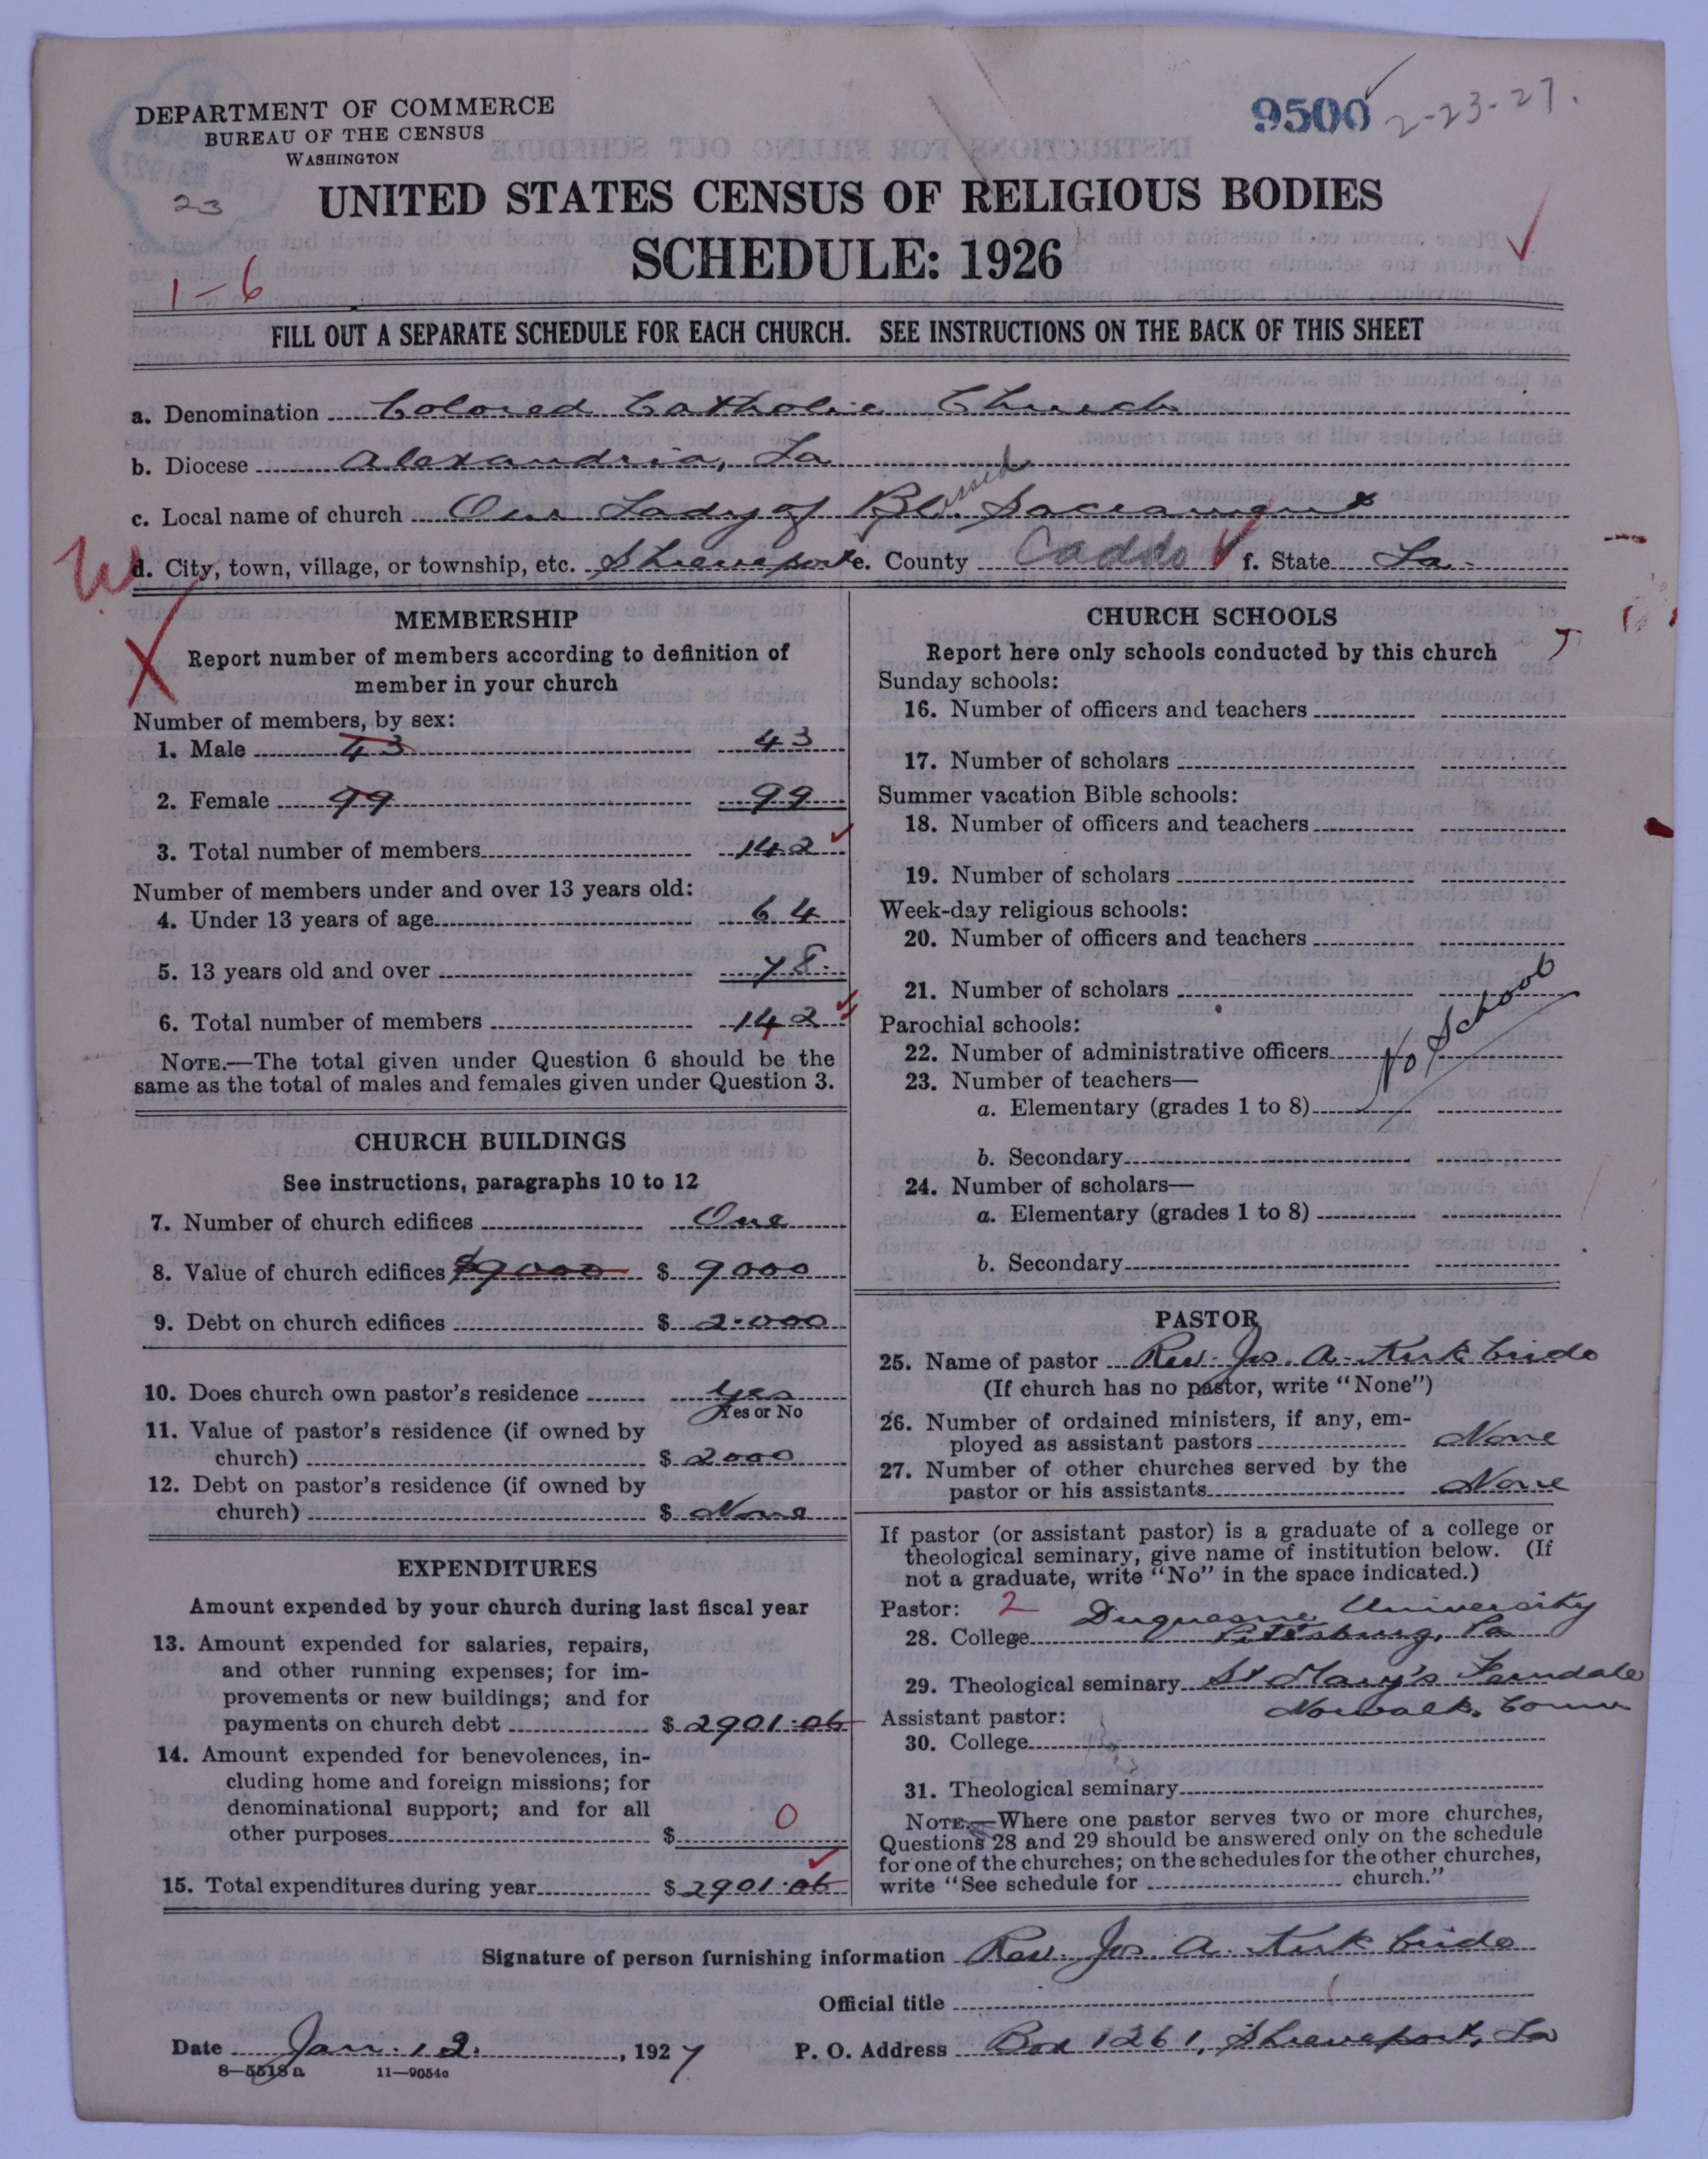 DEPARTMENT OF COMMERCE
BUREAU OF THE CENSUS
WASHINGTON
9500
2-23-27.
23
UNITED STATES CENSUS OF RELIGIOUS BODIES
SCHEDULE: 1926
1-6
FILL OUT A SEPARATE SCHEDULE FOR EACH CHURCH. SEE INSTRUCTIONS ON THE BACK OF THIS SHEET
a. Denomination Colored Catholic Church
b. Diocese Alexandria, La
c. Local name of church Our Lady of Bl.essed Sacrament
d. City, town, village, or township, etc. Shreveport e. County Caddo f. State La.
MEMBERSHIP
Report number of members according to definition of
member in your church
Number of members, by sex:
1. Male 43 43
2. Female 99 99
3. Total number of members 142
Number of members under and over 13 years old:
4. Under 13 years of age 64
5. 13 years old and over 78
6. Total number of members 142
NOTE.—The total given under Question 6 should be the
same as the total of males and females given under Question 3.
CHURCH BUILDINGS
See instructions, paragraphs 10 to 12
7. Number of church edifices One
8. Value of church edifices $9000 $ 9000
9. Debt on church edifices $ 2.000
10. Does church own pastor's residence Yes
Yes or No
11. Value of pastor's residence (if owned by
church) $ 2000
12. Debt on pastor's residence (if owned by
church) $ None
EXPENDITURES
Amount expended by your church during last fiscal year
13. Amount expended for salaries, repairs,
and other running expenses; for im-
provements or new buildings; and for
payments on church debt $ 2901.06
14. Amount expended for benevolences, in-
cluding home and foreign missions; for
denominational support; and for all
other purposes $ 0
15. Total expenditures during year $ 2901.06
CHURCH SCHOOLS
Report here only schools conducted by this church
Sunday schools:
16. Number of officers and teachers
17. Number of scholars
Summer vacation Bible schools:
18. Number of officers and teachers
19. Number of scholars
Week-day religious schools:
20. Number of officers and teachers
21. Number of scholars
Parochial schools:
22. Number of administrative officers No School
23. Number of teachers—
a. Elementary (grades 1 to 8)
b. Secondary
24. Number of scholars—
a. Elementary (grades 1 to 8)
b. Secondary
PASTOR
25. Name of pastor Rev. Jos. A. Kirkbride
(If church has no pastor, write "None")
26. Number of ordained ministers, if any, em-
ployed as assistant pastors None
27. Number of other churches served by the
pastor or his assistants None
If pastor (or assistant pastor) is a graduate of a college or
theological seminary, give name of institution below. (If
not a graduate, write "No" in the space indicated.)
Pastor: 2 Duquesne University
28. College Pittsburg, Pa
29. Theological seminary St Mary's Ferndale
Assistant pastor: Norwalk, Conn
30. College
31. Theological seminary
NOTE.—Where one pastor serves two or more churches,
Questions 28 and 29 should be answered only on the schedule
for one of the churches; on the schedules for the other churches,
write "See schedule for church."
Signature of person furnishing information Rev. Jos. A. Kirkbride
Official title
Date Jan. 12. , 1927 P. O. Address Box 1261, Shreveport, La
8—5518a 11—9054o